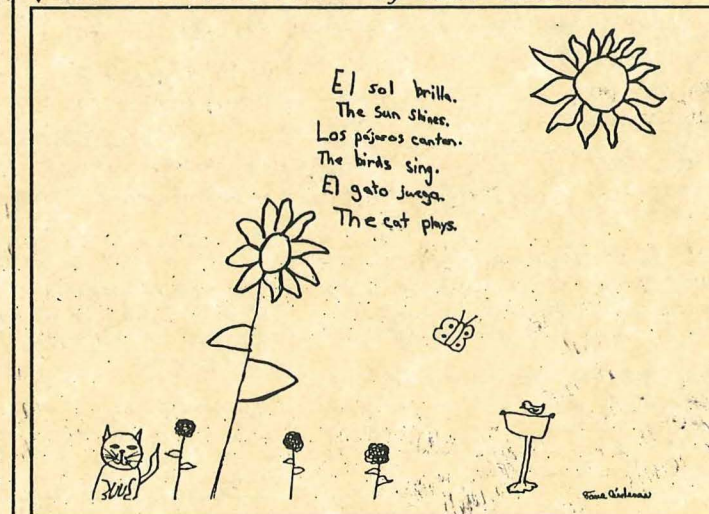 El sol brilla.
The Sun Shines.
Los pájaros cantan.
The birds sing.
El gato juega.
The cat plays.